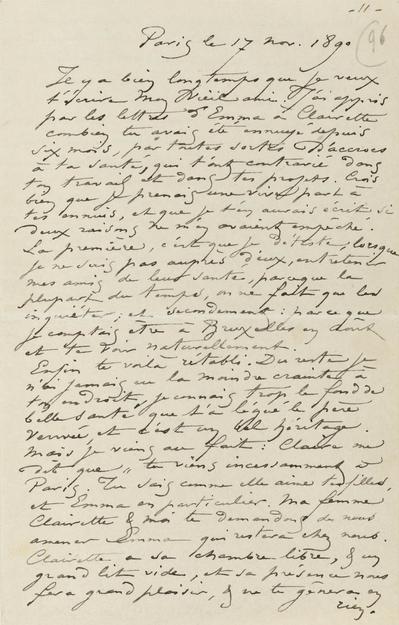 - 11 -
96
Paris le 17 nov. 1890
Il y a bien longtemps que je veux
t'écrire mon vieil ami. J'ai appris
par les lettres d'Emma à Clairette
combien tu avais été ennuyé depuis
six mois, par toutes sortes d'accrocs
à ta santé, qui t'ont contrarié dans
ton travail et dans tes projets. Crois
bien que je prenais une vive part à
tes ennuis, et que je t'en aurais écrit si
deux raisons ne m'en avaient empêché.
La première, c'est que je déteste, lorsque
je ne suis pas auprès d'eux, entretenir
mes amis de leur santé, parceque la
plupart du temps, on ne fait que les
inquiéter; et secondement: parceque
je comptais être à Bruxelles en août
et te voir naturellement.
Enfin te voilà rétabli. Du reste je
n'ai jamais eu la moindre crainte à
ton endroit, je connais trop le fond de
belle santé que t'a légué le père
et c'est un bel héritage.
Mais je viens au fait: Claire me
dit que tu viens incessamment à
Paris. Tu sais comme elle aime tes filles,
et Emma en particulier. Ma femme
Clairette & moi te demandons de nous
amener Emma qui restera chez nous.
Clairette a sa chambre libre, & un
grand lit vide, et sa présence nous
fera grand plaisir, & ne te gênera en
rien.